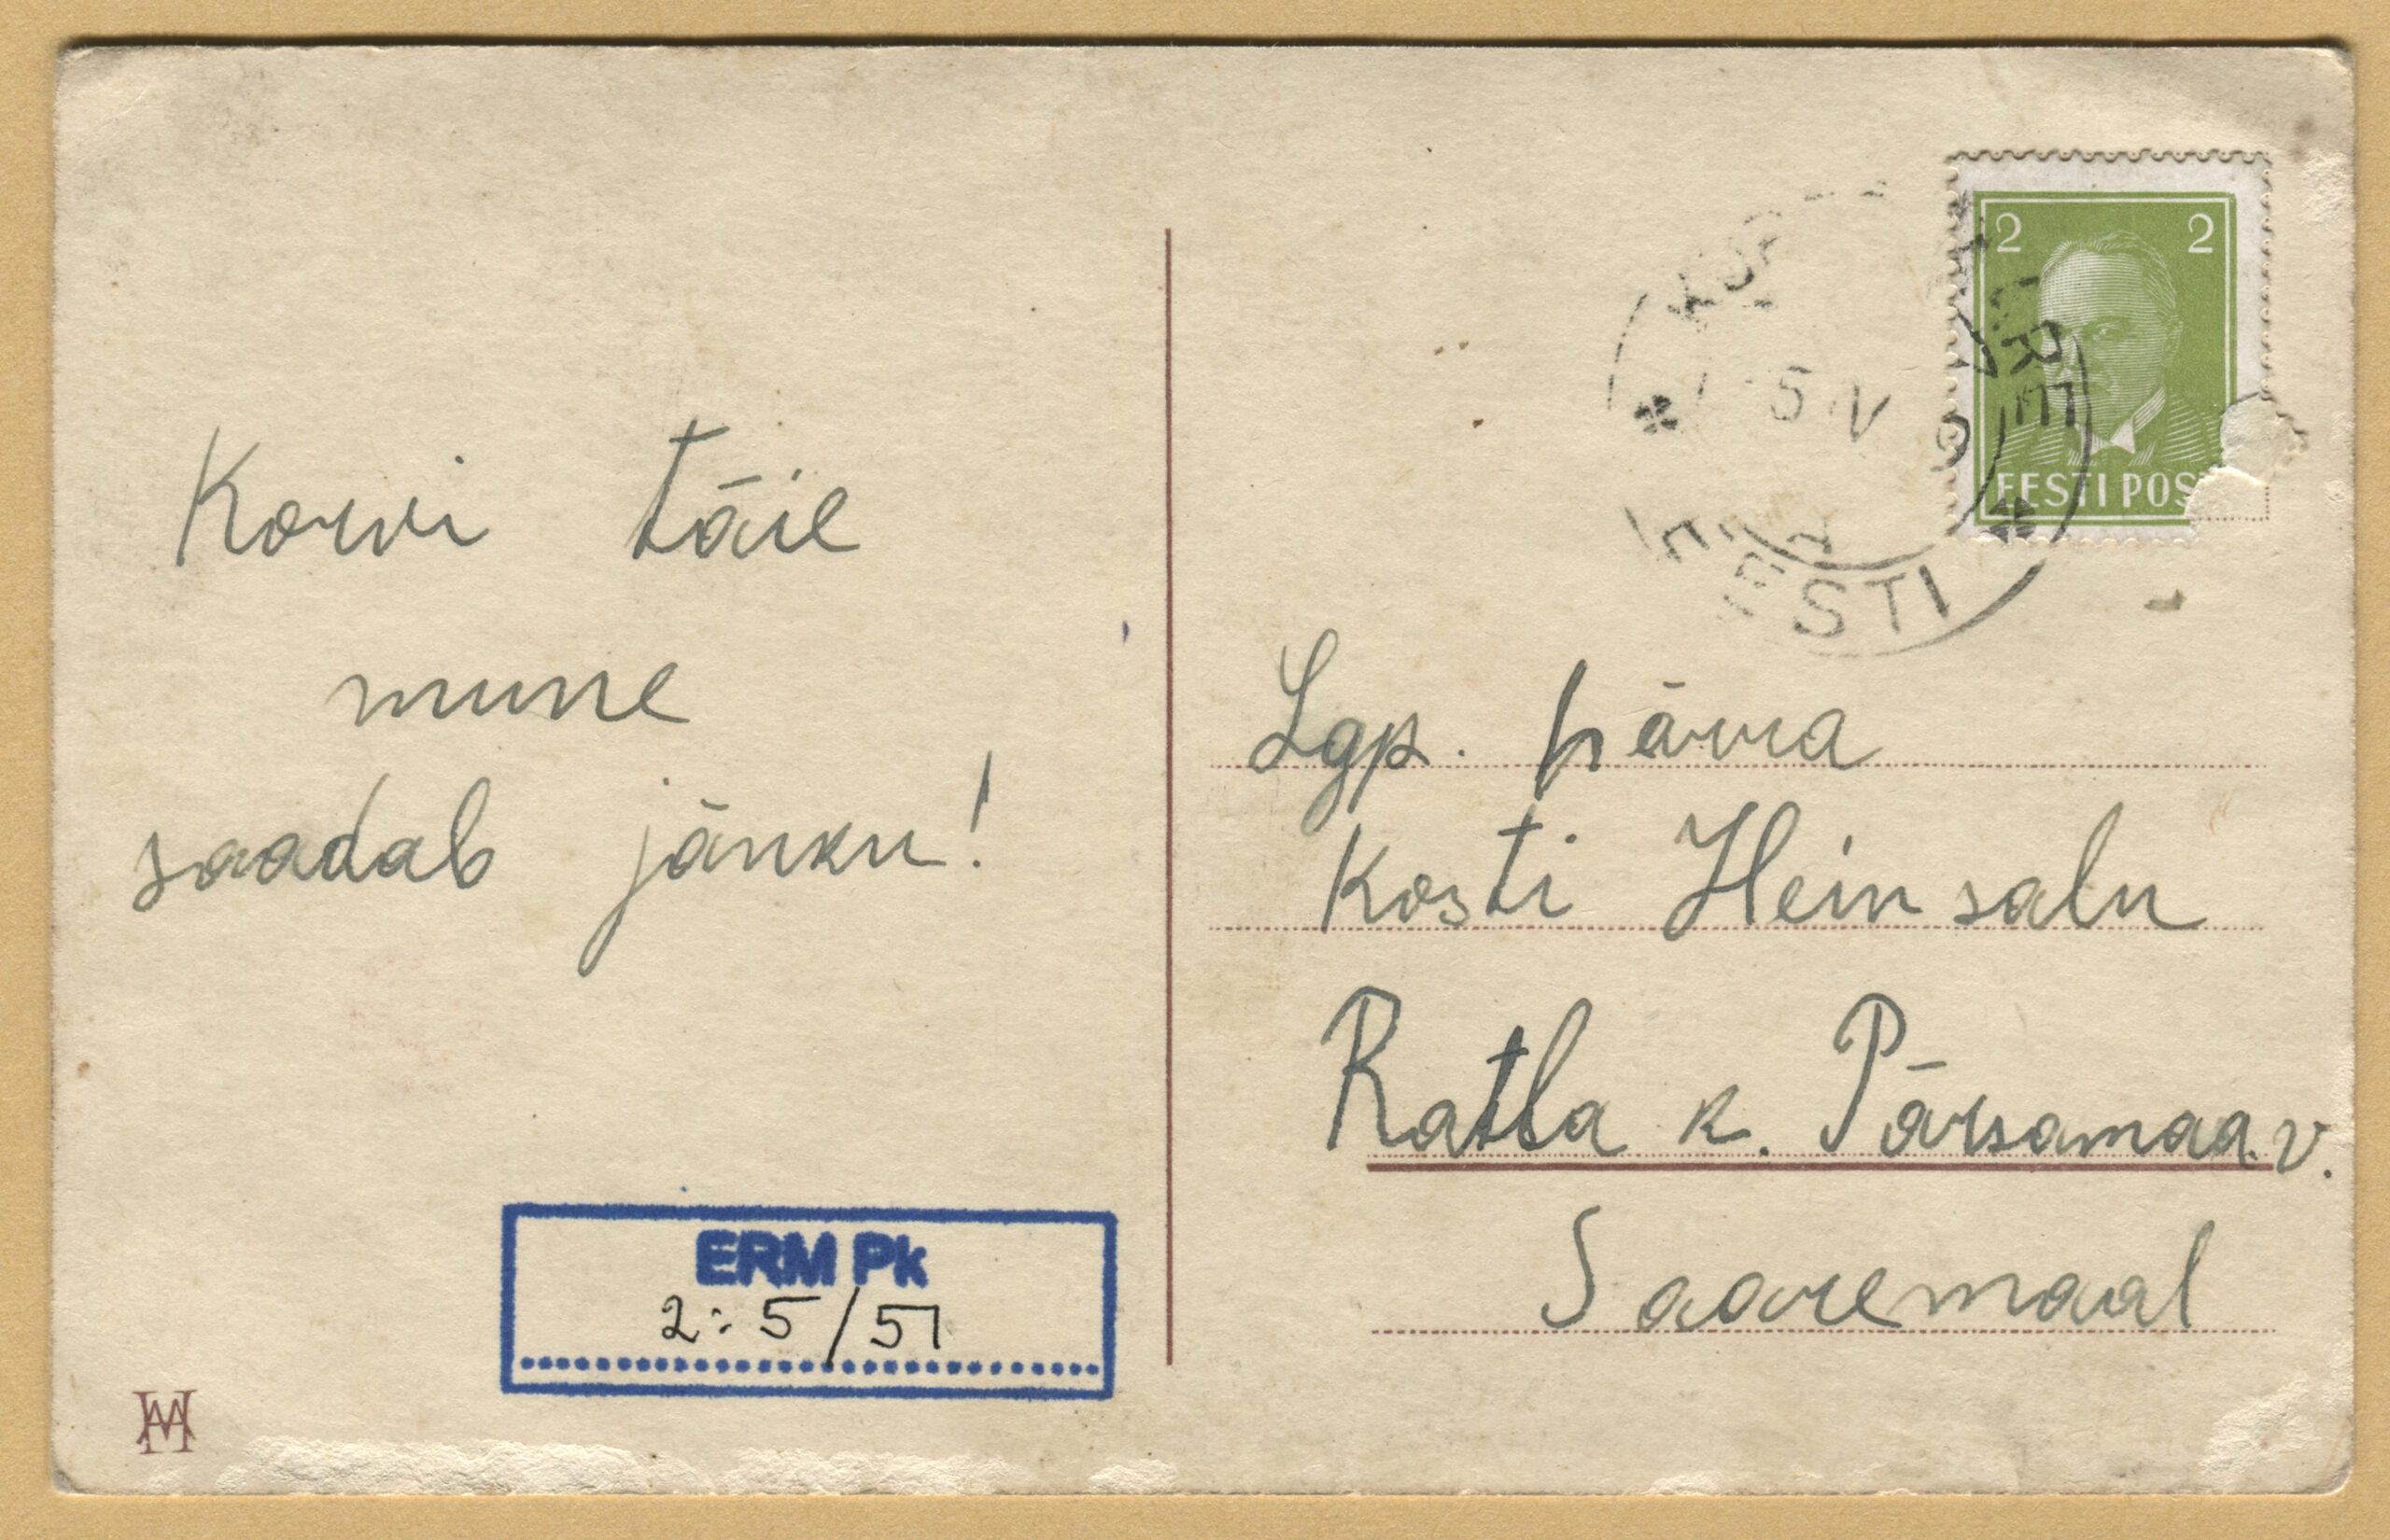 Korvi täie
mune
saadab jänku!
ERM Pk
2:5/51
2 2
EESTI POS
5 IV
EESTI
Lgp. härra
Kosti Heinsalu
Ratla k. Pärsamaa v.
Saaremaal